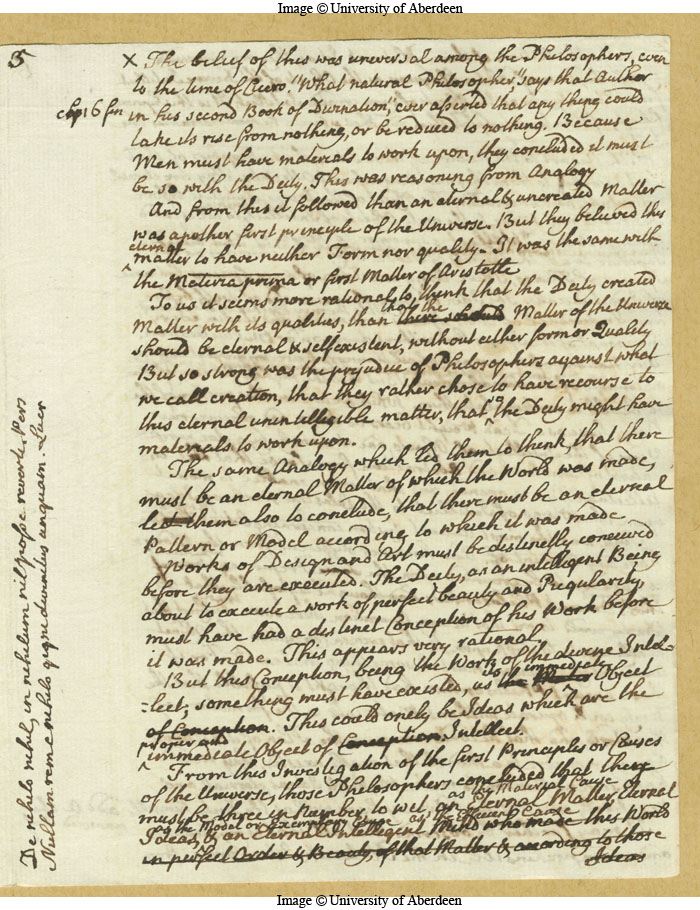 Image © University of Aberdeen
5
× The belief of this was universal among the Philosophers, even
to the time of Cicero. "What natural Philosopher," says that Author
chp 16 fin
in his second Book of Divination, "ever asserted that any thing could
take its rise from nothing, or be reduced to nothing. Because
Men must have materials to work upon, they concluded it must
be so with the Deity. This was reasoning from Analogy
And from this it followed than an eternal & uncreated Matter
was another first principle of the Universe. But they believed this
eternal
matter to have neither Form nor quality. It was the same with
the Materia prima or first Matter of Aristotle
To us it seems more rational to think that the Deity created
that the
Matter with its qualities, than there should Matter of the Universe
should be eternal & selfexistent, without either form or Quality
But so strong was the prejudice of Philosophers against what
we call creation, that they rather chose to have recourse to
this eternal unintelligible matter, that so the Deity might have
materials to work upon.
The same Analogy which led them to think, that there
must be an eternal Matter of which the World was made,
led them also to conclude, that there must be an eternal
Pattern or Model according to which it was made
Works of Design and Art must be distinctly conceived
before they are executed. The Deity, as an intelligent Being
about to execute a work of perfect beauty and Regularity,
must have had a distinct Conception of his Work before
it was made. This appears very rational
But this Conception, being the Work of the divine Intel-
its immediate
-lect, something must have existed, as the Object
of Conception. This could onely be Ideas which are the
proper and
immediate Object of Conception Intellect.
From this Investigation of the first Principles or Causes
of the Universe, those Philosophers concluded that there
as the Material Cause of
must be three in Number, to wit, an Eternal Matter, Eternal
as the Model or Exemplary Cause as the Efficient Cause
Ideas, & an eternal Intelligent Mind who made this World
in perfect Order & Beauty, of that Matter & according to those
Ideas
De nihilo nihil, in nihilum nil posse reverti. Pers
Nullam rem e nihilo gigni divinitus unquam. Lucr
Image © University of Aberdeen